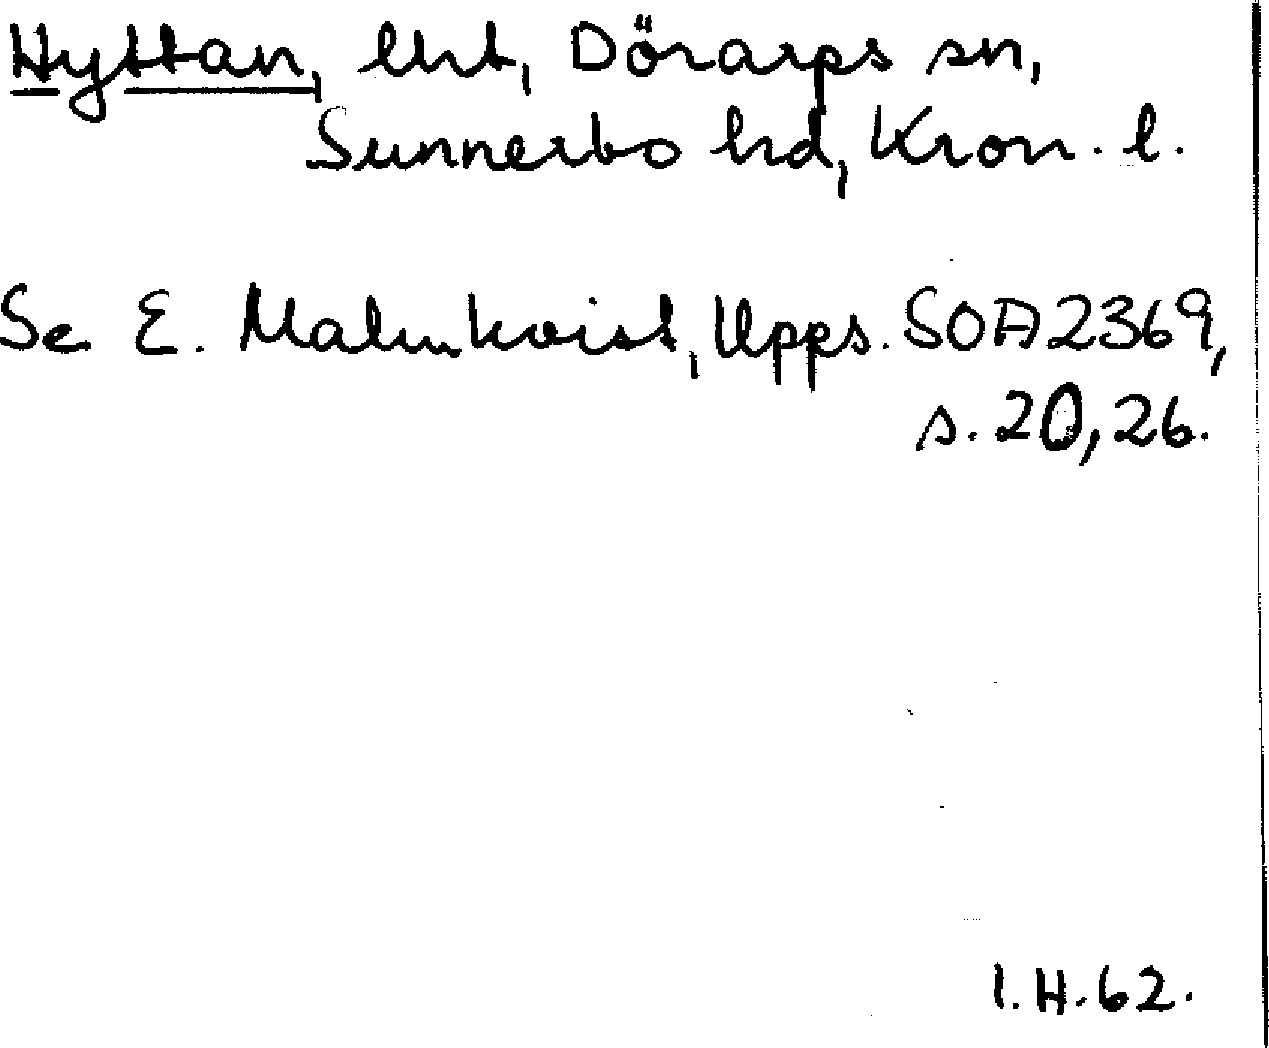 Hyttan, lht, Dörarps sn,
Sunnerbo hd, Kron. l.
Se E. Malmkvist, Upps. SOA 2369,
s. 20, 26.
I.H. 62.